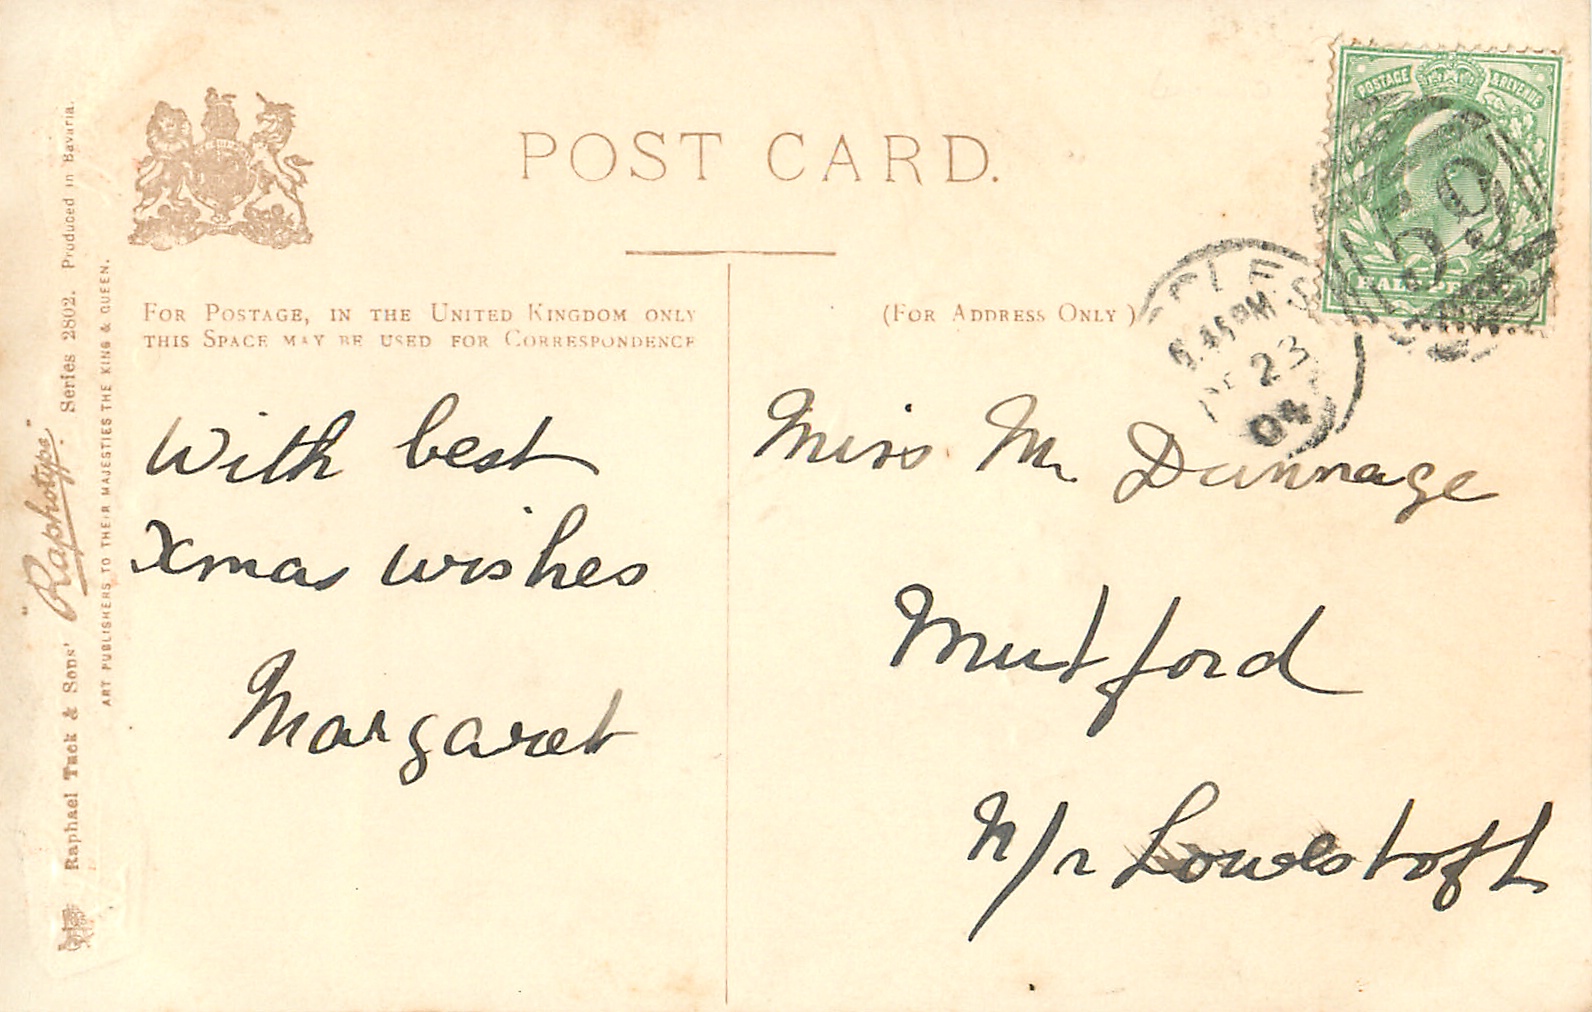 POST CARD.
FOR POSTAGE, IN THE UNITED KINGDOM ONLY
THIS SPACE MAY BE USED FOR CORRESPONDENCE
(FOR ADDRESS ONLY)
With best
Xmas wishes
Margaret
Miss M. Dunnage
Mutford
N/r Lowestoft
POSTAGE & REVENUE
159
.45 PM
23
04
Raphael Tuck & Sons' "Raphotype" Series 2802. Produced in Bavaria.
ART PUBLISHERS TO THEIR MAJESTIES THE KING & QUEEN.